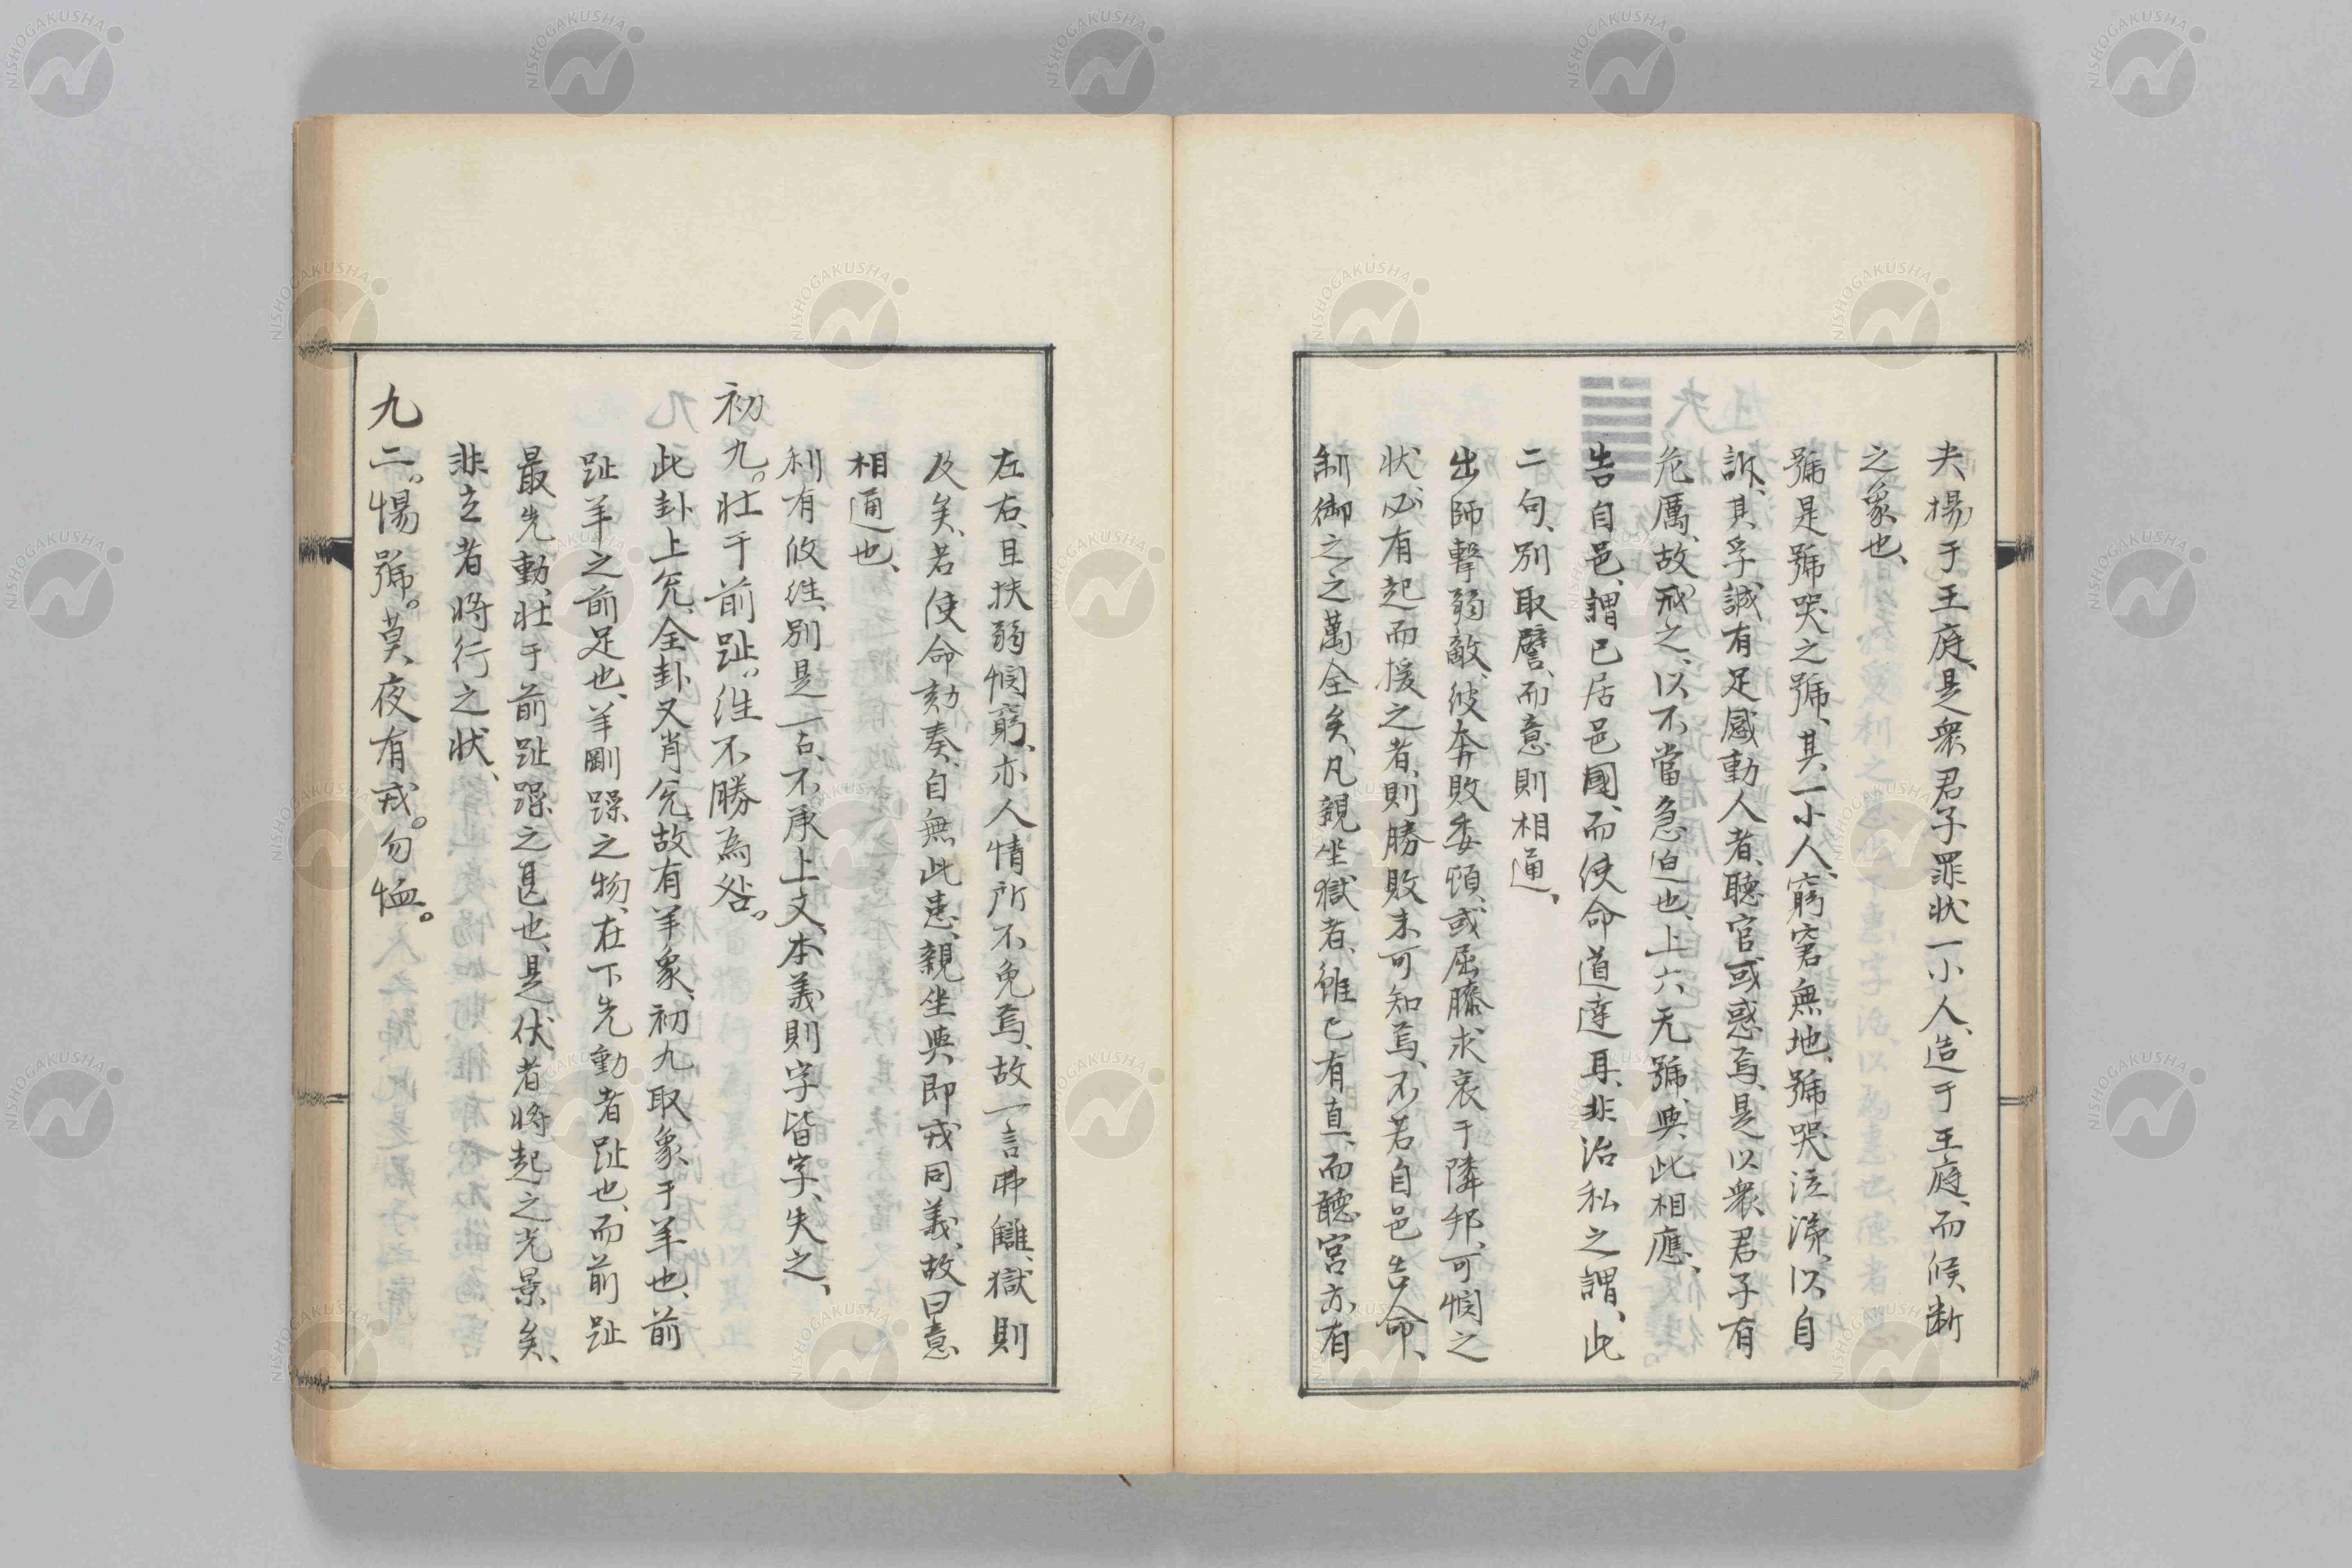 夬揚于王庭、是衆君子罪状一小人、造于王庭、而候断
之象也、
號是號哭之號、其一小人、窮窘無地、號哭泣涕、以自
訴、其孚誠有足感動人者、聴官或惑焉、是以衆君子有
危厲、故戒之、以不當急迫也、上六无號、與此相應、
告自邑、謂已居邑國、而使命道達耳、非治私之謂、此
二句、別取譬、而意則相通、
出師撃弱敵、彼奔敗委頓、或屈膝求哀于隣邦、可憫之
状、必有起而援之者、則勝敗未可知焉、不若自邑告命、
制御之之萬全矣、凡親坐獄者、雖已有直、而聽官亦有
左右、且扶弱憫窮、亦人情所不免焉、故一言弗讎、獄則
及矣、若使命劾奏、自無此患、親坐與即戎同義、故曰意
相通也、
利有攸往、別是一占、不承上文、本義則字皆字、失之、
初九。壮于前趾。往不勝為咎。
此卦上兌、全卦又肖兌、故有羊象、初九取象于羊也、前
趾羊之前足也、羊剛躁之物、在下先動者趾也、而前趾
最先動、壮于前趾躁之甚也、是伏者将起之光景矣、
非立者将行之状、
九二。惕號。莫夜有戎。勿恤。